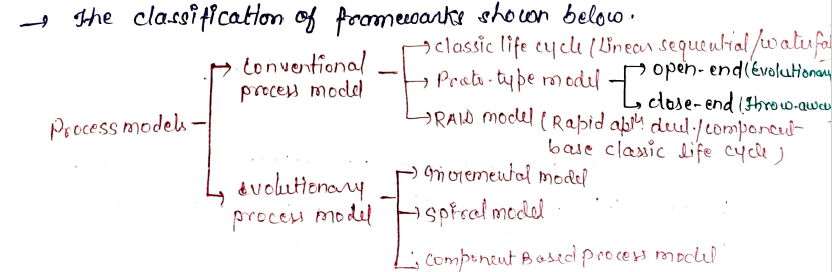 → The classification of frameworks shown below.
Process models
Conventional process model
classic life cycle (Linear sequential/waterfal
Proto-type model
open-end (Evolutionary
close-end (Throw-awa
RAD model (Rapid apln devl./component-
base classic life cycle)
evolutionary process model
Incremental model
Spiral model
Component Based process model